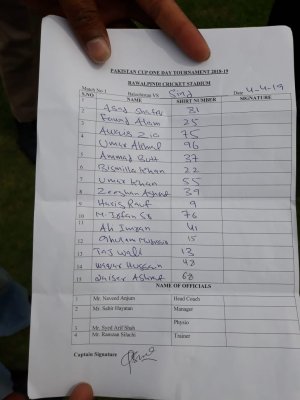 PAKISTAN CUP ONE DAY TOURNAMENT 2018-19
RAWALPINDI CRICKET STADIUM
Match No. 1 Balochistan VS Sind Date 4-4-19
S.NO NAME SHIRT NUMBER SIGNATURE
1 Asad Shafiq 81
2 Fawad Alam 25
3 Zia 75
4 Umar Akmal 96
5 Ammad Butt 37
6 Bismilla Khan 22
7 Umar Khan 55
8 Zeeshan Ashraf 39
9 Haris Rauf 9
10 M. Irfan Sr 76
11 Ali Imran 41
12 Ghulam 15
13 Taj Wali 13
14 Waqar Hussain 48
15 Qaiser Ashraf 68
NAME OF OFFICIALS
1 Mr. Naveed Anjum Head Coach
2 Mr. Sabir Hayatan Manager
3 Mr. Syed Arif Shah Physio
4 Mr. Ramzan Silachi Trainer
Captain Signature